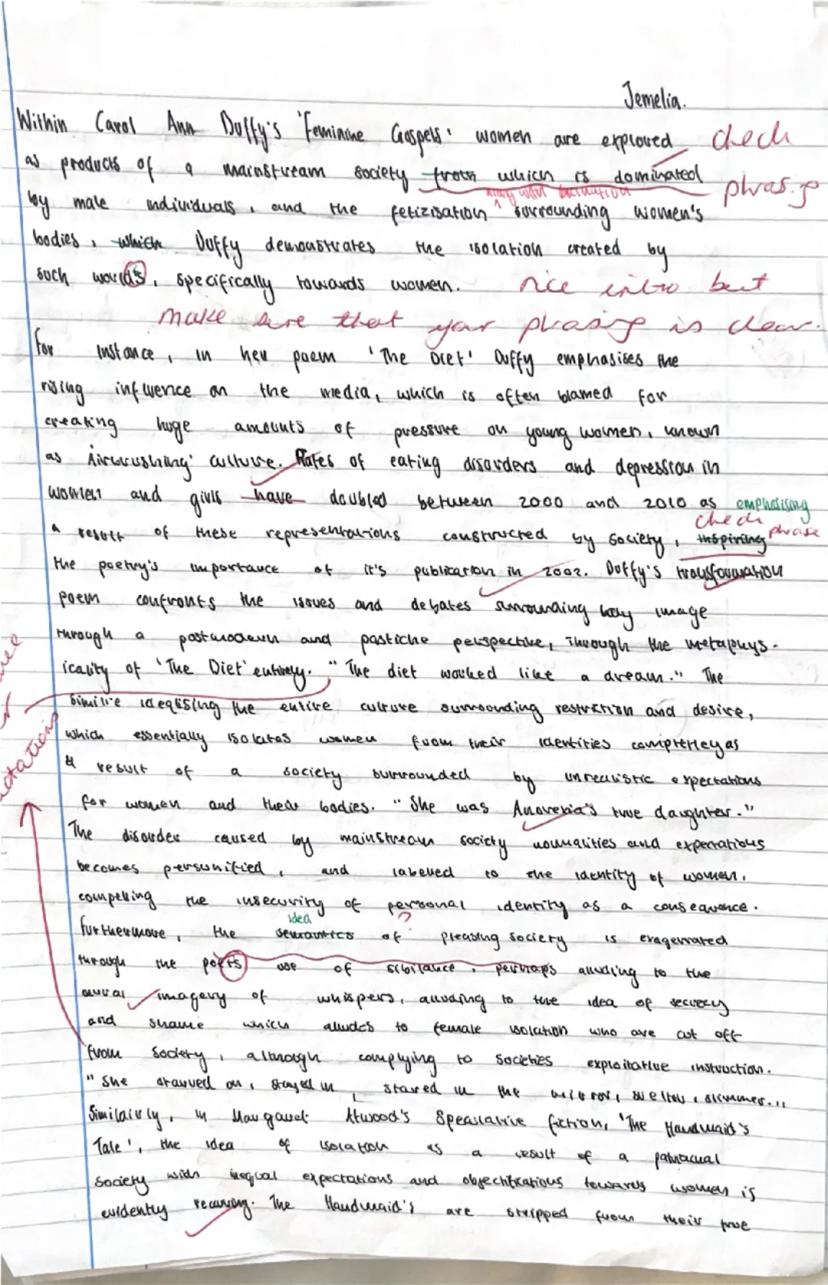 Jemelia.
Within Carol Ann Duffy's 'Feminine Gospels' women are explored check
as products of a mainstream society from which is dominated phrasing
by male individuals, and the fetizisation surrounding women's
bodies, which Duffy demonstrates the isolation created by
such worlds, specifically towards women. nice intro but
make sure that your phrasing is clear.
For instance, in her poem 'The Diet' Duffy emphasises the
rising influence on the media, which is often blamed for
creating huge amounts of pressure on young women, known
as 'Airbrushing' culture. Rates of eating disorders and depression in
women and girls have doubled between 2000 and 2010 as emphasising
a result of these representations constructed by society, inspiring check phrase
the poetry's importance at it's publication in 2002. Duffy's transformation
poem confronts the issues and debates surrounding body image
through a postmodern and pastiche perspective, through the metaphys-
icality of 'The Diet' entirely. "The diet worked like a dream." The
simile idealising the entire culture surrounding restriction and desire,
which essentially isolates women from their identities completely as
a result of a society surrounded by unrealistic expectations
for women and their bodies. "She was Anorexia's true daughter."
The disorder caused by mainstream society normalities and expectations
becomes personified, and labelled to the identity of women,
compelling the insecurity of personal identity as a consequence.
idea ?
Furthermore, the semantics of pleasing society is exagerrated
through the poets use of sibilance, perhaps alluding to the
aural imagery of whispers, alluding to the idea of secrecy
and shame which alludes to female isolation who are cut off
from society, although complying to societies exploitative instruction.
"She starved on, stayed in, stared in the mirror, svelter, slimmer...
Similairly, in Margaret Atwood's Speculative fiction, 'The Handmaid's
Tale', the idea of isolation as a result of a patriacual
society with inequal expectations and objectifications towards women is
evidently recurring. The Handmaid's are stripped from their true